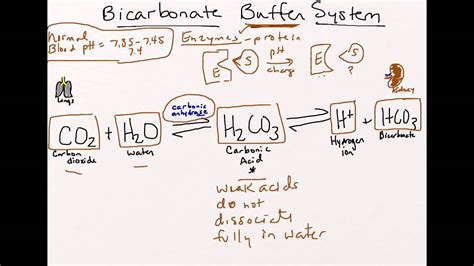 Bicarbonate Buffer System
Normal Blood pH = 7.35 - 7.45
7.4
Enzymes - protein
E S pH change E S ?
Lungs
Kidney
carbonic anhydrase
CO2 + H2O ⇌ H2CO3 ⇌ H+ + HCO3
Carbon dioxide
water
Carbonic Acid
Hydrogen ion
Bicarbonate
*
weak acids
do not
dissociate
fully in water